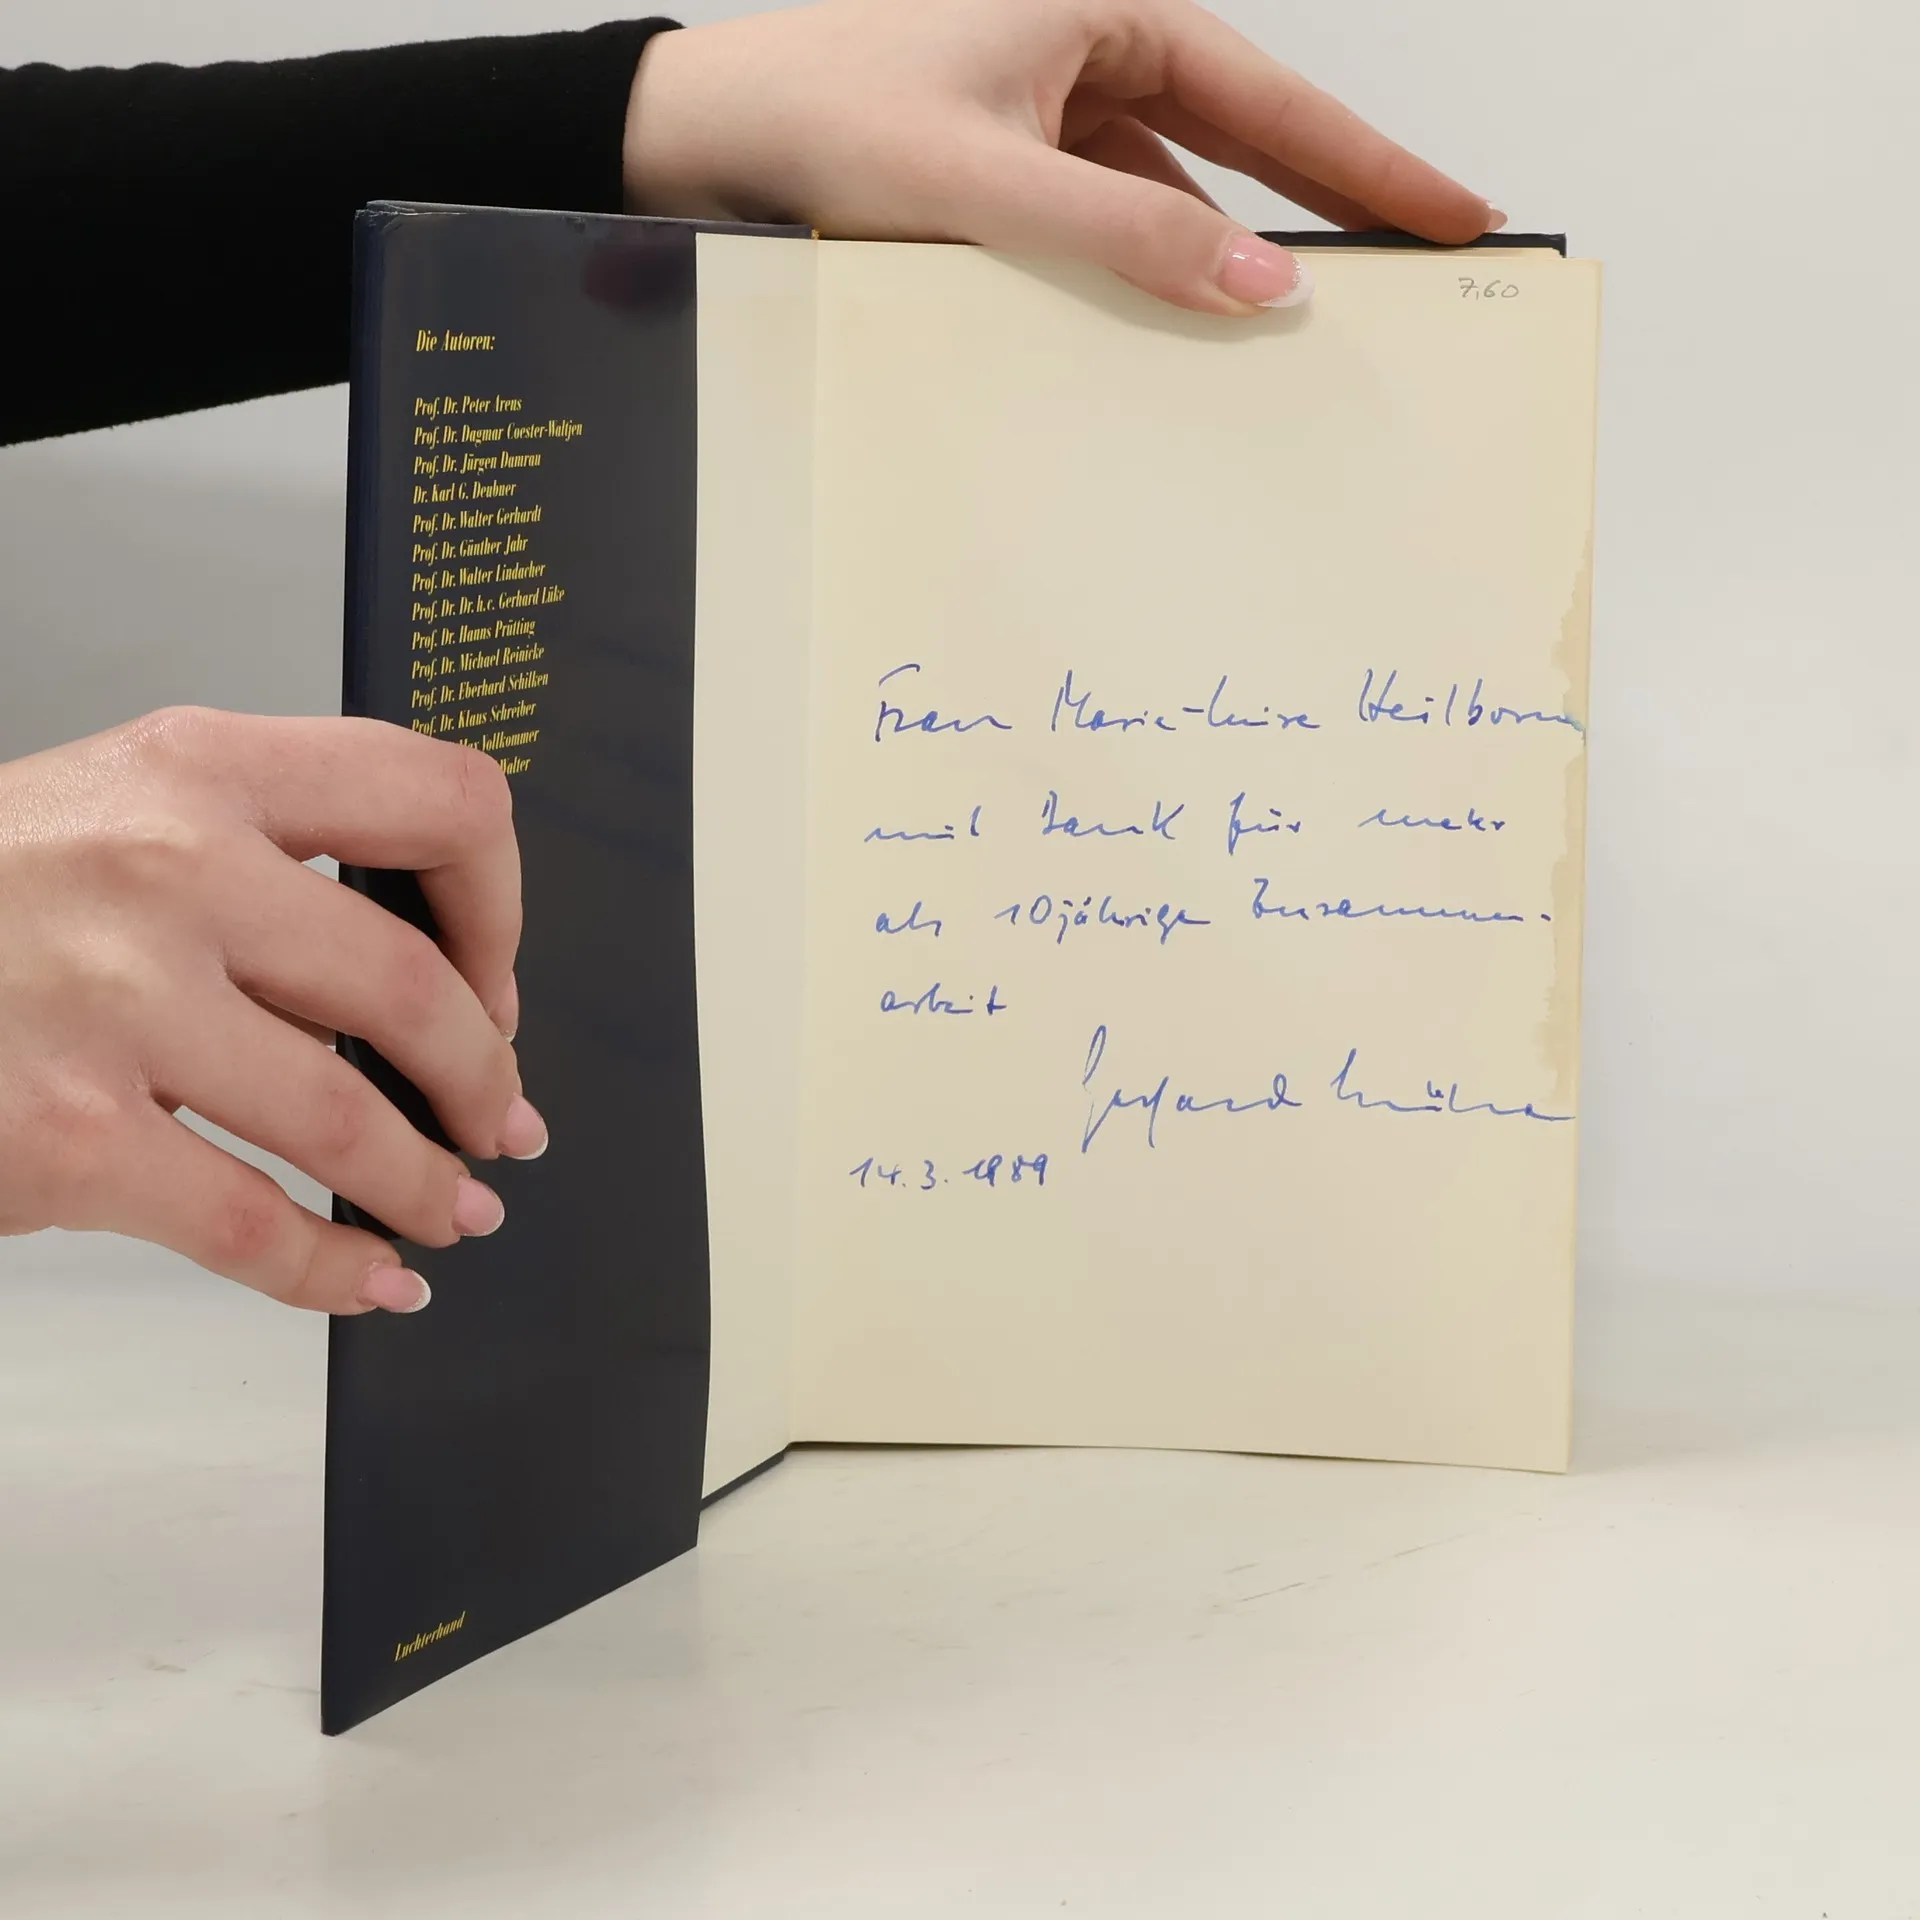 Die Autoren:
Prof. Dr. Peter Arens
Prof. Dr. Dagmar Coester-Waltjen
Prof. Dr. Jürgen Damrau
Dr. Karl G. Deubner
Prof. Dr. Walter Gerhardt
Prof. Dr. Günther Jahr
Prof. Dr. Walter Lindacher
Prof. Dr. Dr. h.c. Gerhard Lüke
Prof. Dr. Hanns Prütting
Prof. Dr. Michael Reinicke
Prof. Dr. Eberhard Schilken
Prof. Dr. Klaus Schreiber
Max Vollkommer
Walter
Luchterhand
7,60
Frau Marie-Luise Heilborn
mit Dank für mehr
als 10jährige Zusammen-
arbeit
Gerhard
14.3.1989